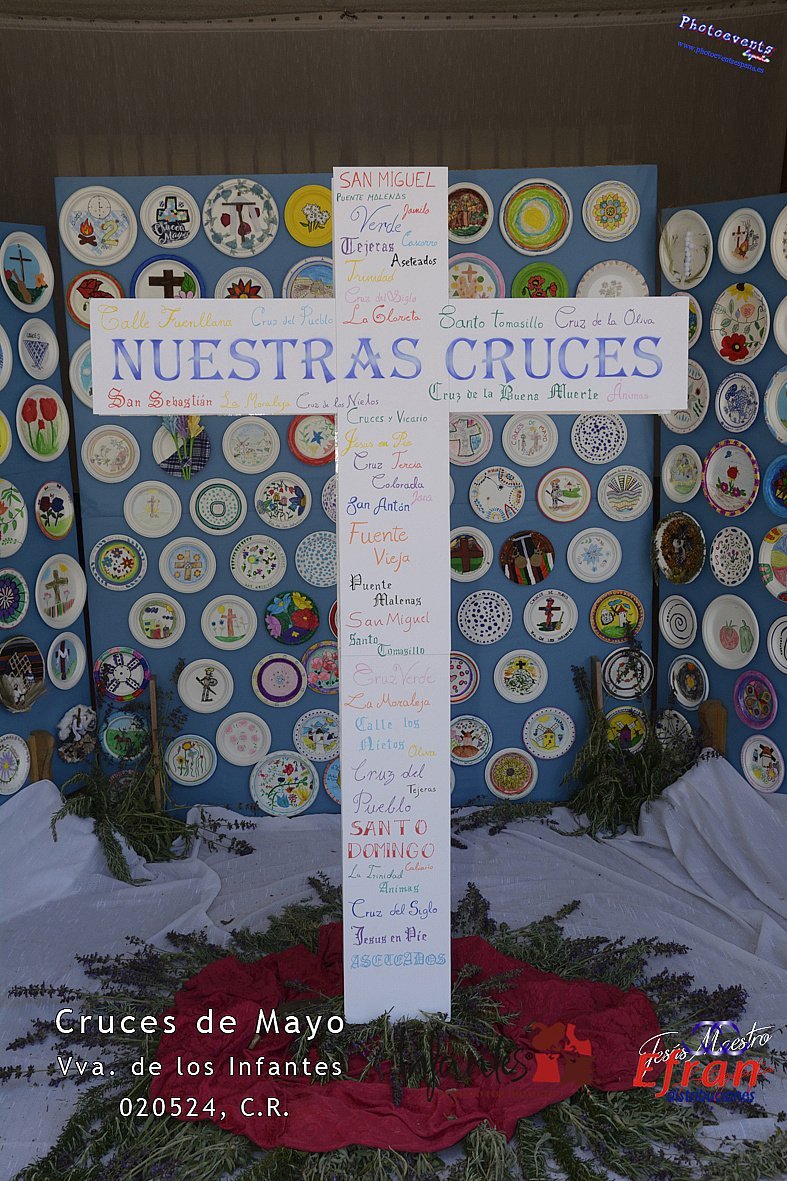 Photoevents
España
www.photoeventsespana.es
SAN MIGUEL
PUENTE MALENAS
Jamila
Verde
Tejeras Cascorro
Aseteados
Trinidad
Cruz del Siglo
La Glorieta
Calle Fuenllana Cruz del Pueblo
Santo Tomasillo Cruz de la Oliva
NUESTRAS CRUCES
San Sebastián La Moraleja Cruz de los Nietos
Cruz de la Buena Muerte Ánimas
Cruces y Vicario
Jesus en Pie
Cruz Tercia
Colorada
San Antón
Fuente
Vieja
Puente
Malenas
San Miguel
Santo
Tomasillo
Cruz Verde
La Moraleja
Calle los
Nietos Oliva
Cruz del
Pueblo Tejeras
SANTO
DOMINGO
La Trinidad Calvario
Animas
Cruz del Siglo
Jesus en Pie
ASETEADOS
Cruces de Mayo
Vva. de los Infantes
020524, C.R.
Jesús Maestro
Efran
distribuciones